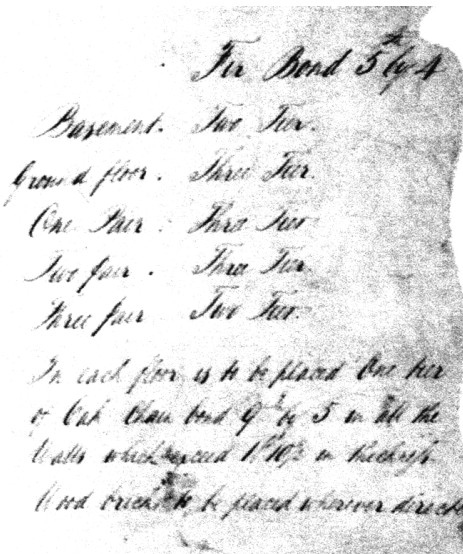 Fir Bond 5 by 4
Basement. Two Tier.
Ground floor. Three Tier.
One Pair Three Tier
Two pair. Three Tier.
Three pair Two Tier.
In each floor is to be placed One tier
of Oak Chain bond 9 by 5 in all the
Walls which exceed in thickness
Wood bricks to be placed wherever direct